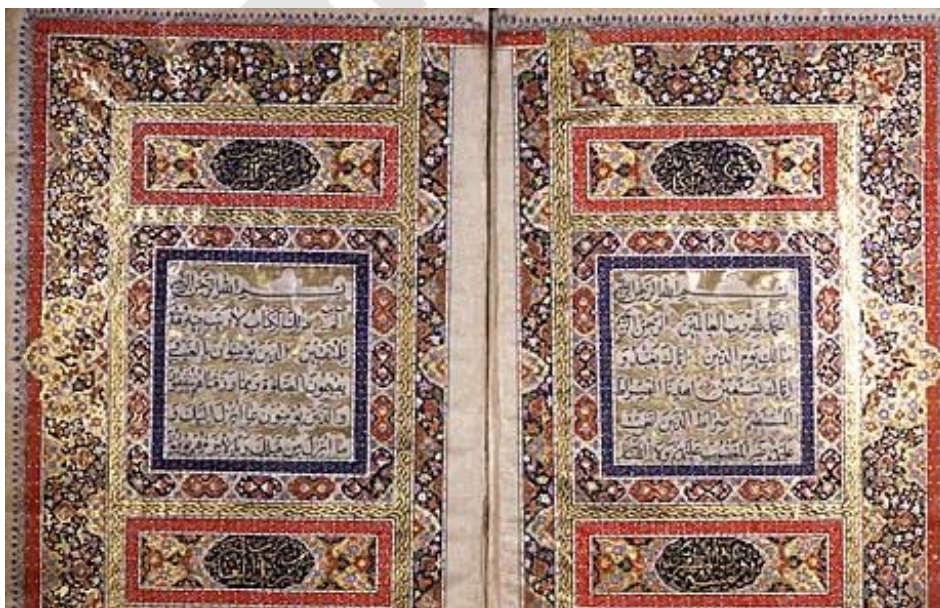 بسم الله الرحمن الرحيم
الحمد لله رب العالمين الرحمن الرحيم
مالك يوم الدين إياك نعبد و
إياك نستعين اهدنا الصراط
المستقيم صراط الذين أنعمت
عليهم غير المغضوب عليهم ولا الضالين
بسم الله الرحمن الرحيم
الم ذلك الكتاب لا ريب فيه هدى
للمتقين الذين يؤمنون بالغيب و
يقيمون الصلاة ومما رزقناهم ينفقون
والذين يؤمنون بما أنزل إليك و
ما أنزل من قبلك وبالآخرة هم يوقنون